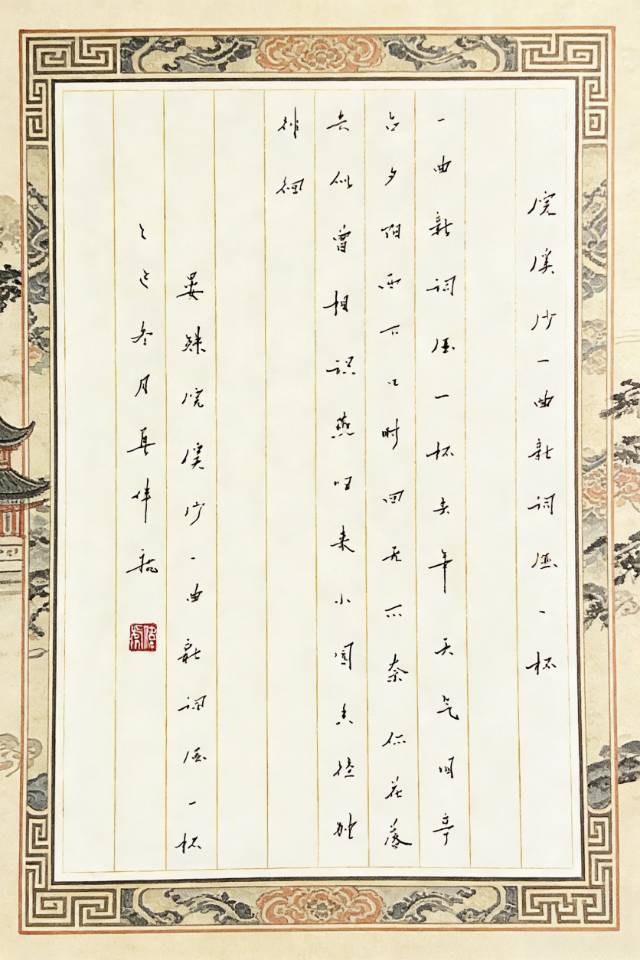 浣溪沙一曲新词酒一杯
一曲新词酒一杯去年天气旧亭
台夕阳西下几时回无可奈何花落
去似曾相识燕归来小园香径独
徘徊
晏殊浣溪沙一曲新词酒一杯
乙巳冬月真伟